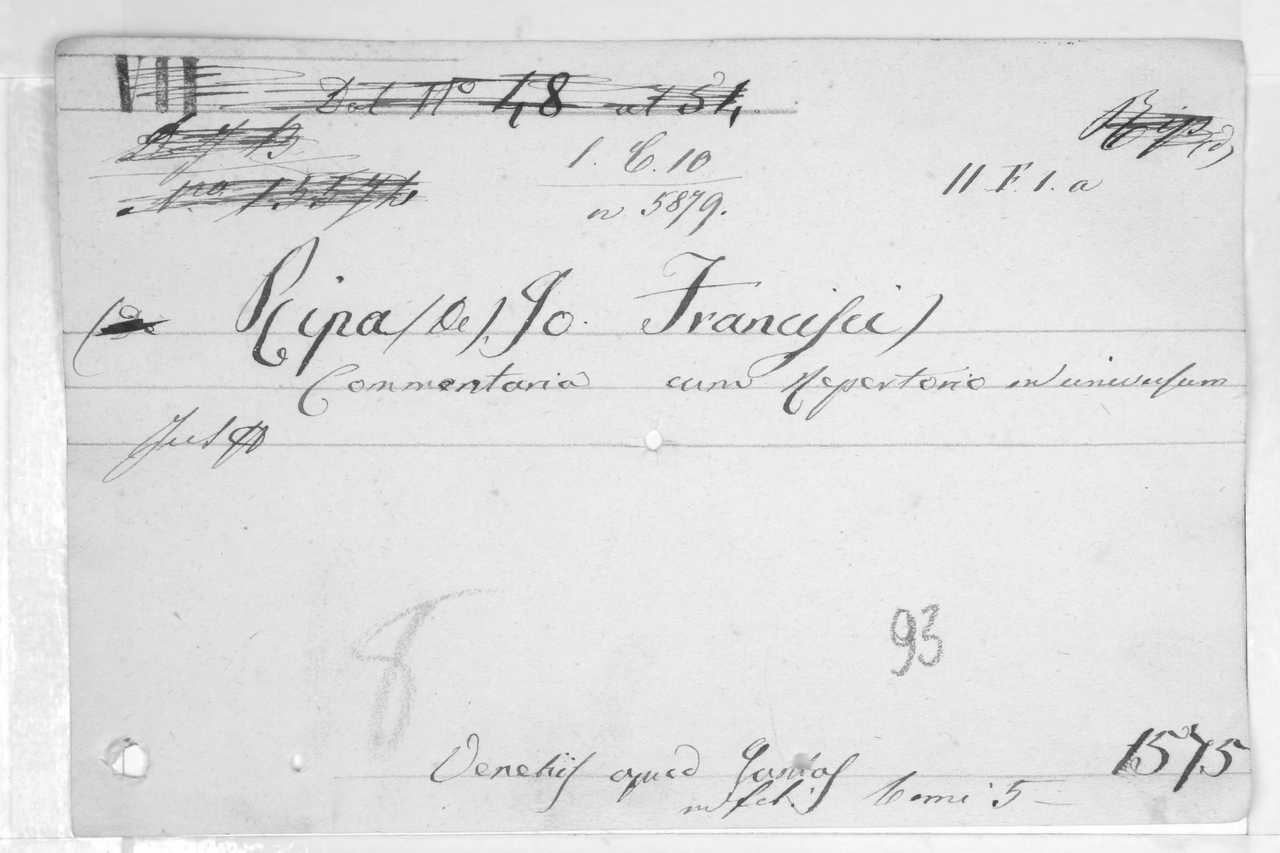 VII Dal Nº 48 al 51
1. C. 10
II F. 1. a
Nro 15574
n 5879.
Ripa (De) Jo. Francisci)
Commentaria cum Repertorio in universum
Jus
8
93
Venetiis apud Juntas 1575
in fol. Tomi 5